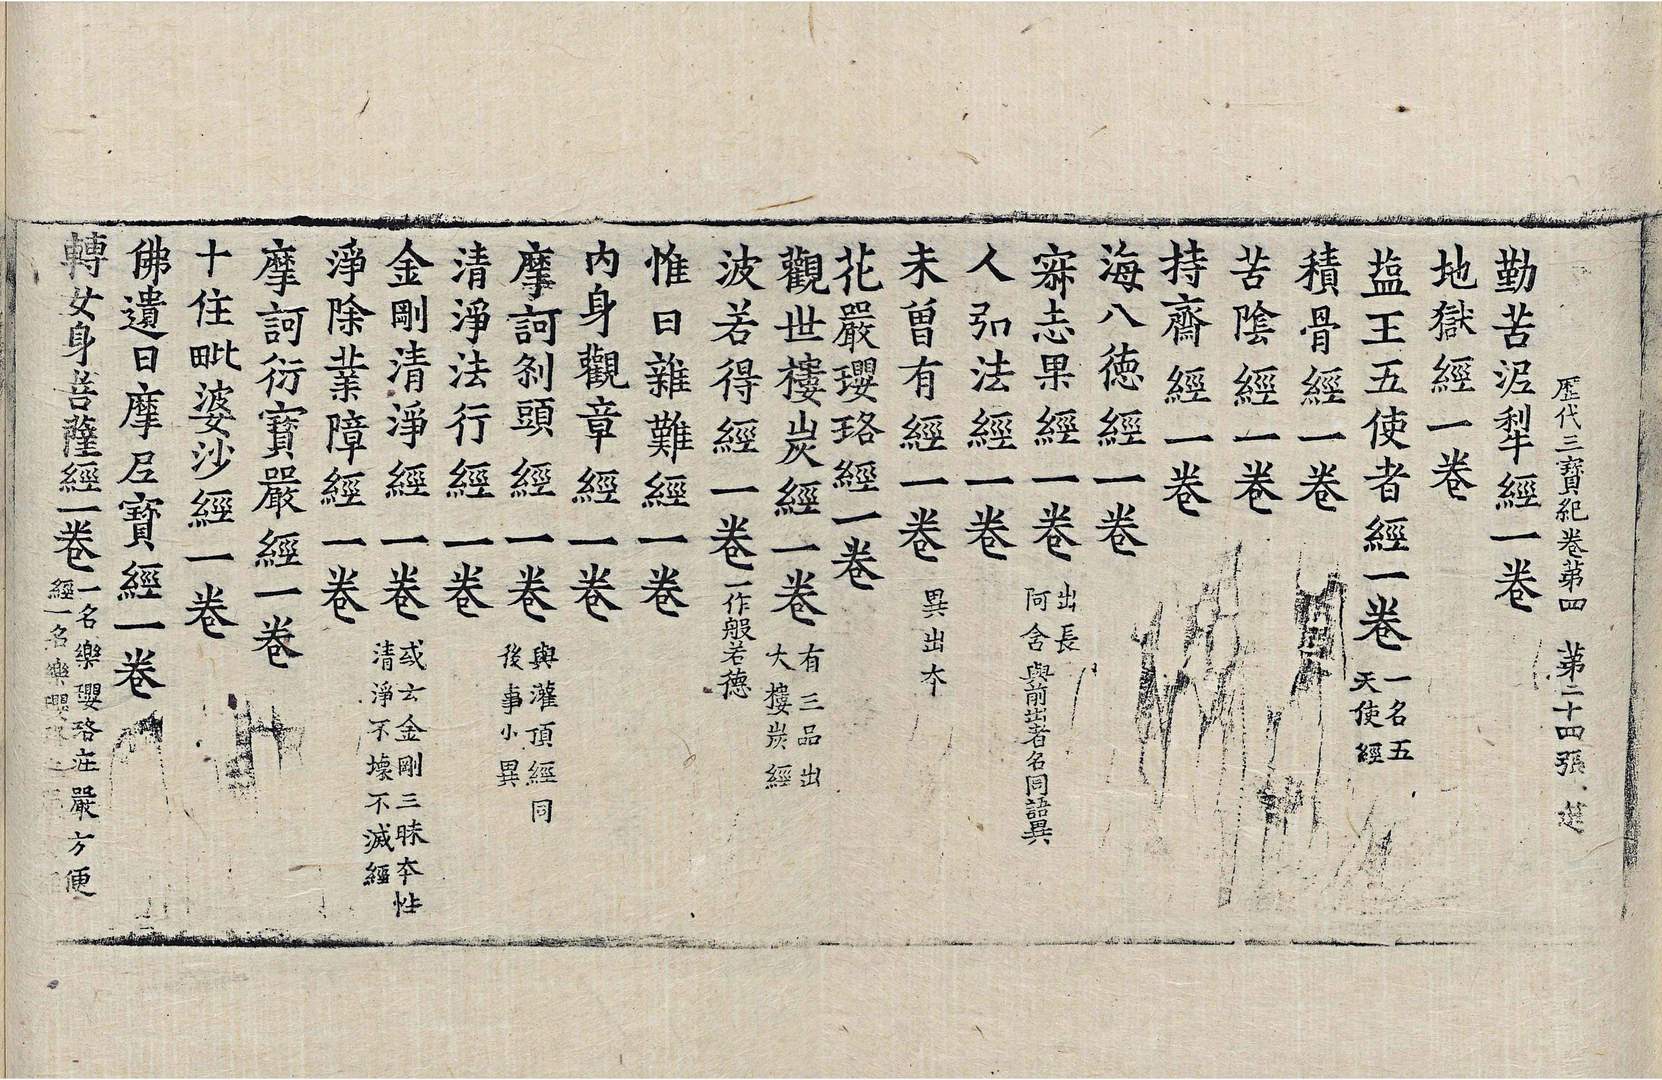 歷代三寶紀卷第四 第二十四張
勤苦泥犁經一卷
地獄經一卷
塩王五使者經一卷 一名五
天使經
積骨經一卷
苦陰經一卷
持齋經一卷
海八德經一卷
寐志果經一卷 出長
阿含與前出者名同語異
人弘法經一卷
未曾有經一卷 異出本
花嚴瓔珞經一卷
觀世樓炭經一卷 有三品出
大樓炭經
波若得經一卷 一作般若德
惟日雜難經一卷
内身觀章經一卷
摩訶剎頭經一卷 與灌頂經同
後事小異
清淨法行經一卷
金剛清淨經一卷 或云金剛三昧本性
清淨不壞不滅經
淨除業障經一卷
摩訶衍寶嚴經一卷
十住毗婆沙經一卷
佛遺日摩尼寶經一卷
轉女身菩薩經一卷 一名樂瓔珞莊嚴方便
經一名樂瓔珞